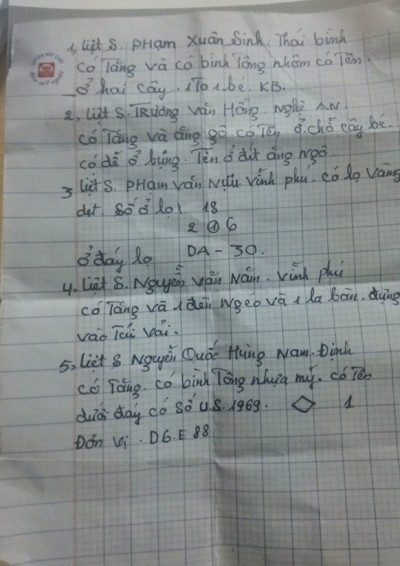 1, liệt S. PHẠM Xuân Sinh. Thái bình
có Tăng và có bình Tông nhôm có Tên.
ở hai cây. 1 To 1 be. KB.
2, liệt S. TRƯƠNG văn Hồng. Nghệ AN.
có Tăng và ăng gô có Tên ở chỗ cây be.
có dễ ở bụng. Tên ở đít ăng ngô
3 liệt S. PHạm văn Nựu vĩnh phú. có lọ vàng
dẹt. Số ở lọ 18
2 ① 6
ở đáy lọ DA - 30.
4. liệt S. Nguyễn văn Năm. vĩnh phú
có Tăng và 1 đèn Ngeo và 1 la bàn. đựng
vào Túi vải.
5, liệt S Nguyễn Quốc Hùng Nam. Định
có Tăng. có bình Tông nhựa mỹ. có Tên
dưới đáy có Số U.S. 1969. ◇ 1
Đơn vị. D6. E 88